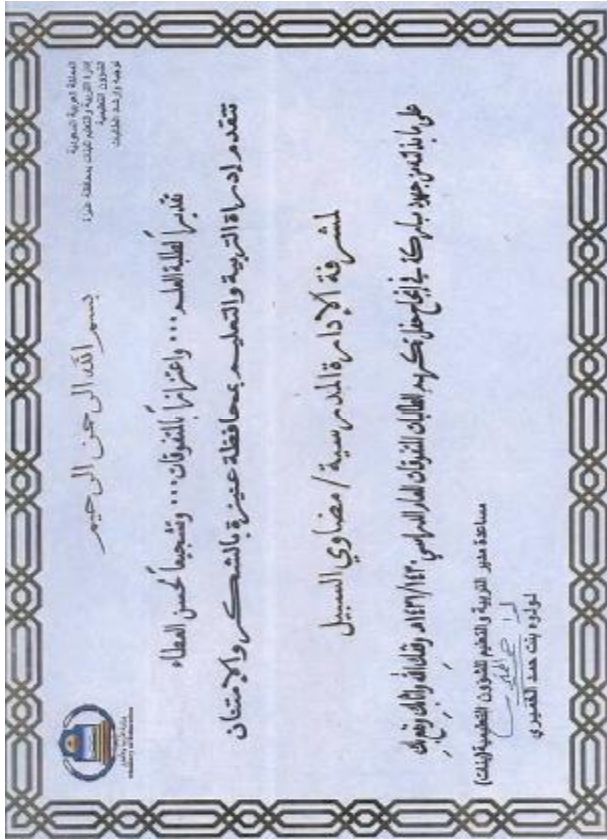 المملكة العربية السعودية
إدارة التربية والتعليم للبنات بمحافظة عنيزة
الشؤون التعليمية
توجيه وإرشاد الطالبات
وزارة التربية والتعليم
Ministry of Education
بسم الله الرحمن الرحيم
تقديراً لطلبة العلم ... واعتزازاً بالمتفوقات ... وتشجيعاً لحسن العطاء
تتقدم إدارة التربية والتعليم بمحافظة عنيزة بالشكر والامتنان
لمشرفة الإدارة المدرسية / مضاوي السبيل
على ما بذلته من جهود مباركة في إنجاح حفل تكريم الطالبات المتفوقات للعام الدراسي ١٤٣٠/١٤٢٩هـ وفقك الله وأثابك ونفع بك
مساعدة مدير التربية والتعليم للشؤون التعليمية (بنات)
لولوه بنت حمد